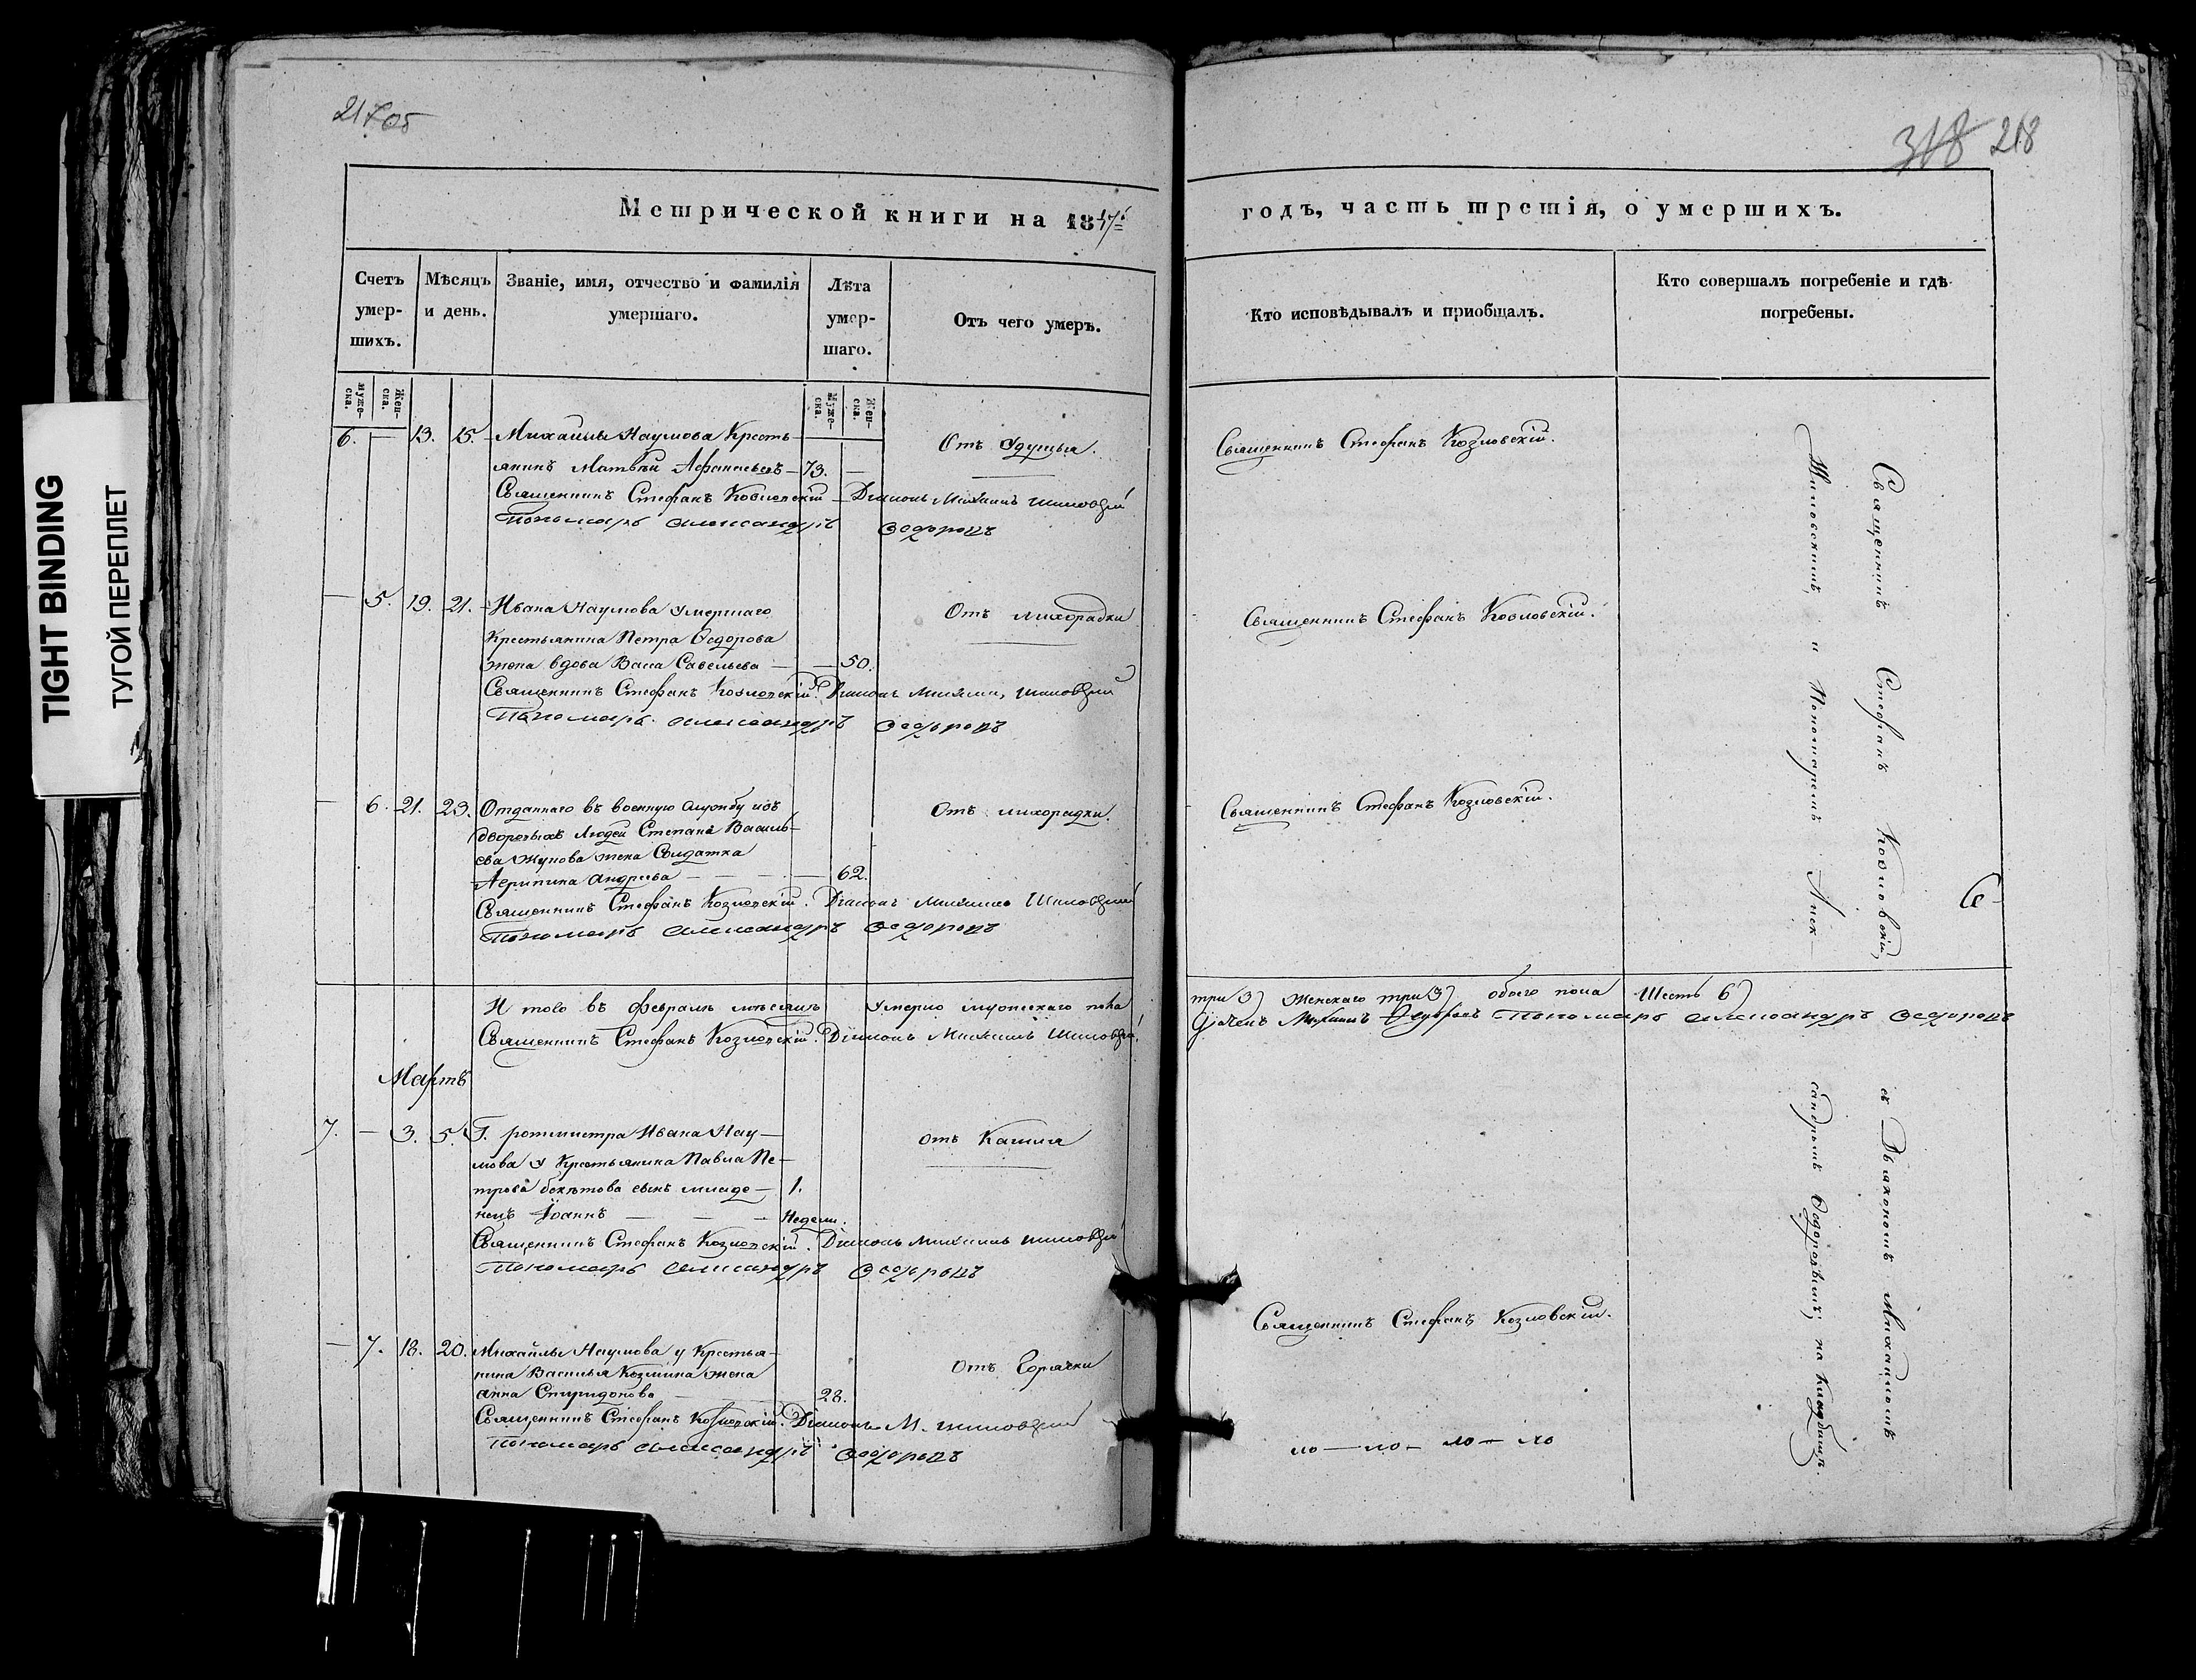 TIGHT BINDING
ТУГОЙ ПЕРЕПЛЕТ
318 218
Метрической книги на 1847й
годъ, часть третія, о умершихъ.
Счетъ умер-шихъ.
Мѣсяцъ и день.
Званіе, имя, отчество и фамилія умершаго.
Лѣта умер-шаго.
Отъ чего умеръ.
Кто исповѣдывалъ и приобщалъ.
Кто совершалъ погребеніе и гдѣ погребены.
муже-ска.
Жен-ска.
Муже-ска.
Жен-ска.
6. — 13. 15. Михайлы Наумова Кресть-
янинъ Матвѣй Афанасьевъ — 73. —
Отъ Удушья.
Священникъ Стефанъ Козловскій.
Священникъ Стефанъ Козловскій Діаконъ Михаилъ Шиловскій
Пономарь Александръ Федоровъ
— 5. 19. 21. Ивана Наумова Умершаго
Крестьянина Петра Федорова
жена вдова Васса Савельева — — 50.
Отъ лихорадки
Священникъ Стефанъ Козловскій.
Священникъ Стефанъ Козловскій. Діаконъ Михаилъ Шиловскій
Пономарь Александръ Федоровъ
— 6. 21. 23. Отданнаго въ военную службу изъ
дворовыхъ людей Степана Василь-
ева Жукова жена Солдатка
Агрипина Андреева — — — 62.
Отъ лихорадки.
Священникъ Стефанъ Козловскій.
Священникъ Стефанъ Козловскій. Діаконъ Михаилъ Шиловскій
Пономарь Александръ Федоровъ
И того въ февралѣ мѣсяцѣ Умерло мужескаго пола
три 3) Женскаго три 3) обоего пола Шесть 6)
Священникъ Стефанъ Козловскій. Діаконъ Михаилъ Шиловскій
Пономарь Александръ Федоровъ
Мартъ
7. — 3. 5. Г. ротмистра Ивана Нау-
мова у Крестьянина Павла Пе-
трова сынъ младе- 1.
нецъ Іоаннъ — — — Недели.
Отъ Кашля
Священникъ Стефанъ Козловскій. Діаконъ Михаилъ Шиловскій
Пономарь Александръ Федоровъ
— 7. 18. 20. Михайлы Наумова у Крестья-
нина Василья Козмина жена
Анна Спиридонова — 28.
Отъ Горячки
Священникъ Стефанъ Козловскій.
Священникъ Стефанъ Козловскій. Діаконъ М. Шиловскій
Пономарь Александръ Федоровъ
Священникъ Стефанъ Козловскій, съ Діакономъ Михаиломъ
Шиловскимъ, и Пономаремъ Алек-
сандромъ Федоровымъ; на Кладбищѣ.